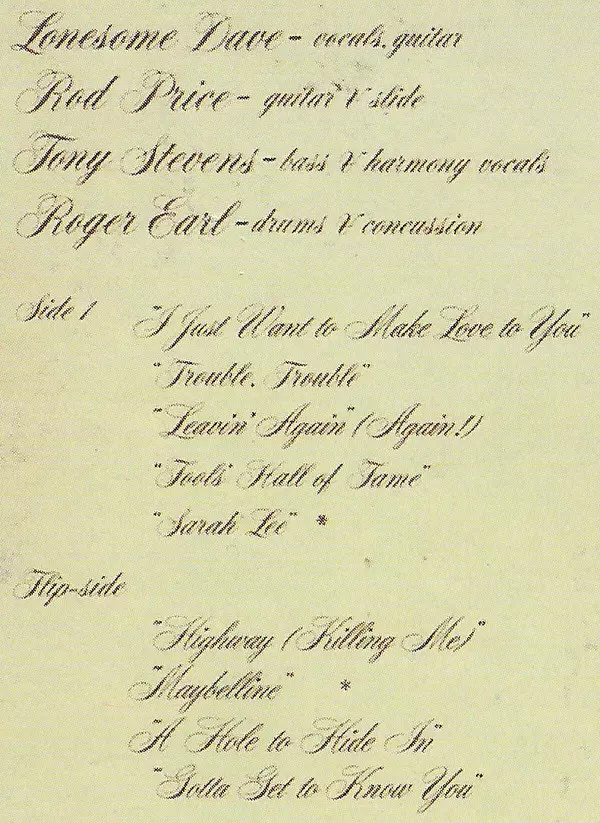 Lonesome Dave - vocals, guitar
Rod Price - guitar & slide
Tony Stevens - bass & harmony vocals
Roger Earl - drums & concussion
Side 1 "I Just Want to Make Love to You"
"Trouble, Trouble"
"Leavin' Again" (Again!)
"Fools' Hall of Fame"
"Sarah Lee" *
Flip-side
"Highway (Killing Me)"
"Maybelline" *
"A Hole to Hide In"
"Gotta Get to Know You"